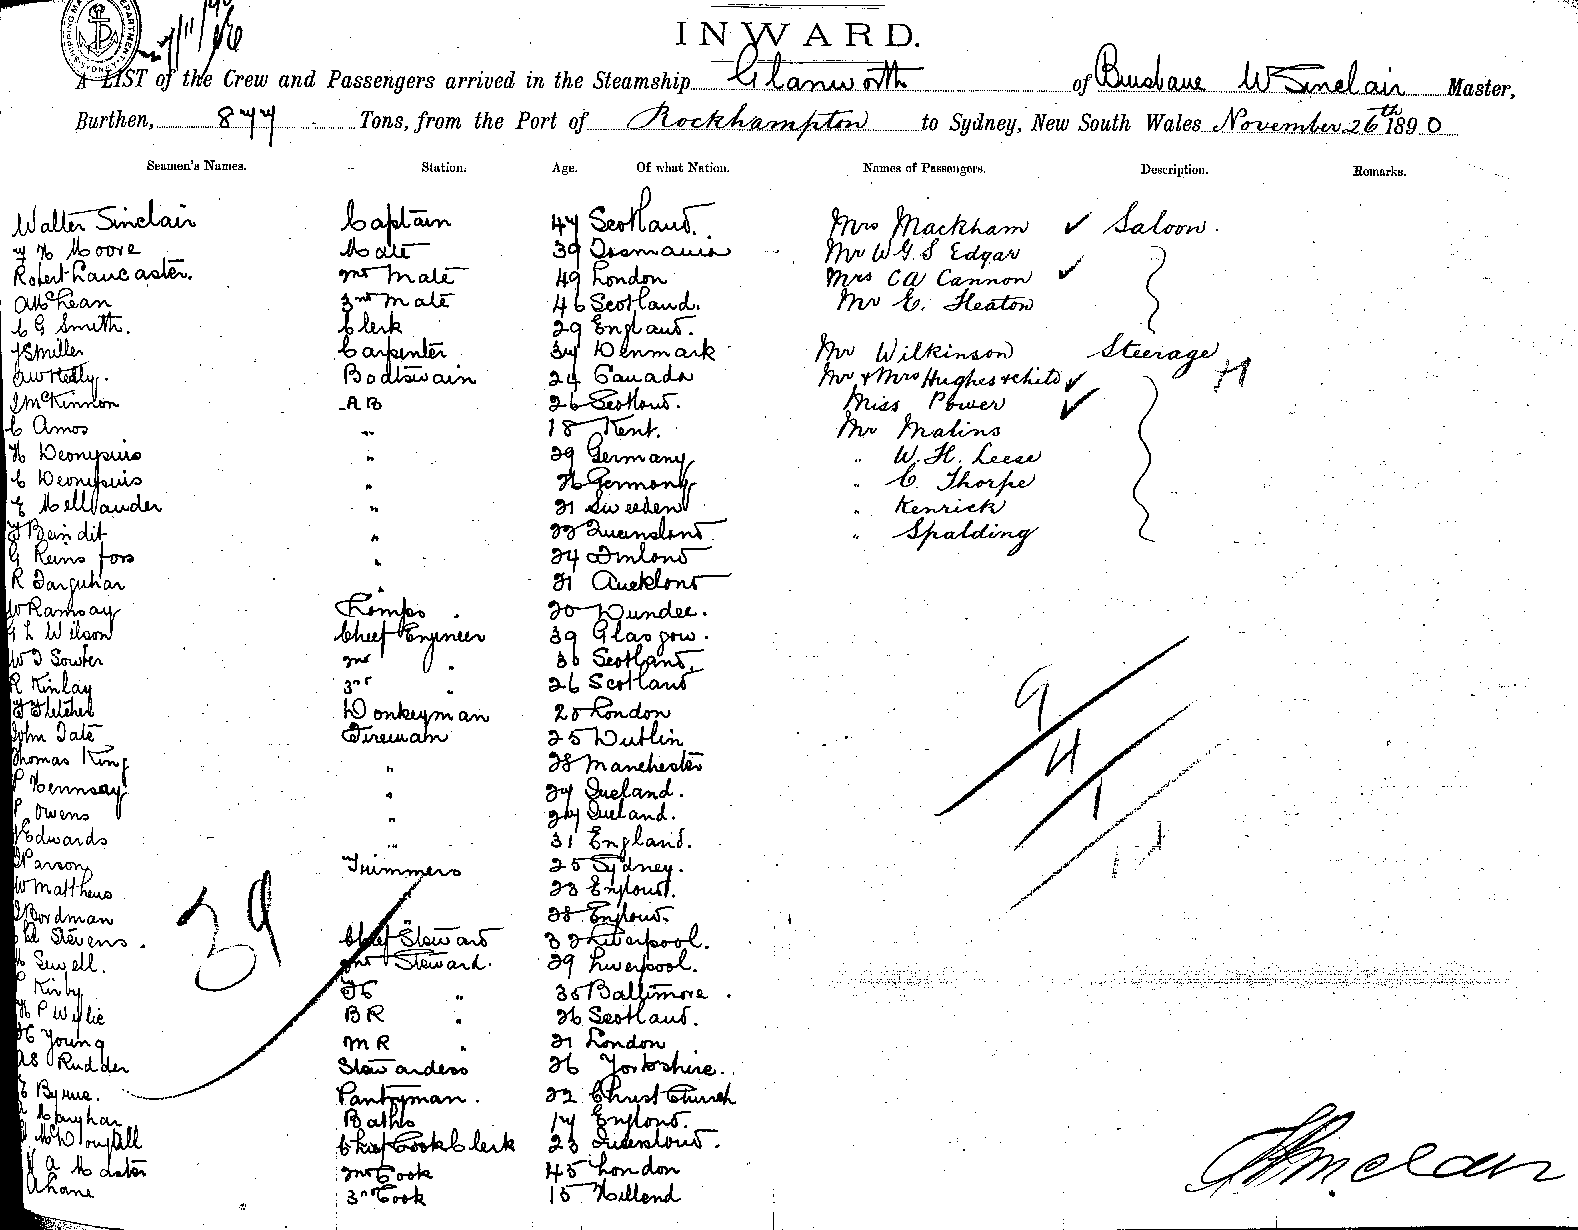 INWARD.
A LIST of the Crew and Passengers arrived in the Steamship Glanworth of Brisbane W Sinclair Master,
Burthen, 877 Tons, from the Port of Rockhampton to Sydney, New South Wales November 26th 1890
Seamen's Names. Station. Age. Of what Nation. Names of Passengers. Description. Remarks.
Walter Sinclair Captain 47 Scotland. Mrs Mackham ✓ Saloon.
Moore Mate 39 Tasmania Mr W G S Edgar
Robert Lancaster. 2nd Mate 49 London Mrs CA Cannon ✓
A McLean 3rd Mate 46 Scotland. Mr E. Heaton
C G Smith. Clerk 29 England.
Miller Carpenter 34 Denmark Mr Wilkinson Steerage
Boatswain 24 Canada Mr & Mrs Hughes & child ✓
J McKinnon AB 26 Scotland. Miss Power ✓
C Amos " 18 Kent. Mr Malins
H Deonysius " 29 Germany " W. H. Leese
C Deonysius " 26 Germany " C. Thorpe
" 21 Sweeden " Kenrick
" 22 Queensland " Spalding
G " 24 Finland
R Farquhar " 21 Auckland
W Ramsay Lamps. 20 Dundee.
L Wilson Chief Engineer 39 Glasgow.
W Sowter 2nd " 30 Scotland.
R Kinlay 3rd " 26 Scotland
Fletcher Donkeyman 20 London
John Tate Fireman 25 Dublin
Thomas King " 28 Manchester
" 24 Ireland.
P Owens " 24 Ireland.
Edwards " 31 England.
Parson Trimmers 25 Sydney.
W Matthews " 23 England.
Bordman " 28 England.
Stevens. Chief Steward 32 Liverpool.
Sewell. 2nd Steward. 29 Liverpool.
Kirby FC " 35 Baltimore.
H P Wylie BR " 26 Scotland.
H Young MR " 21 London
AS Rudder Stewardess 26 Yorkshire.
E Byrne. Pantryman. 22 Christ Church
Baths 17 England.
McDougall Chief Cook Clerk 23 Queensland.
2nd Cook 45 London
Ahane 3rd Cook 15
39
9
4
1
W Sinclair